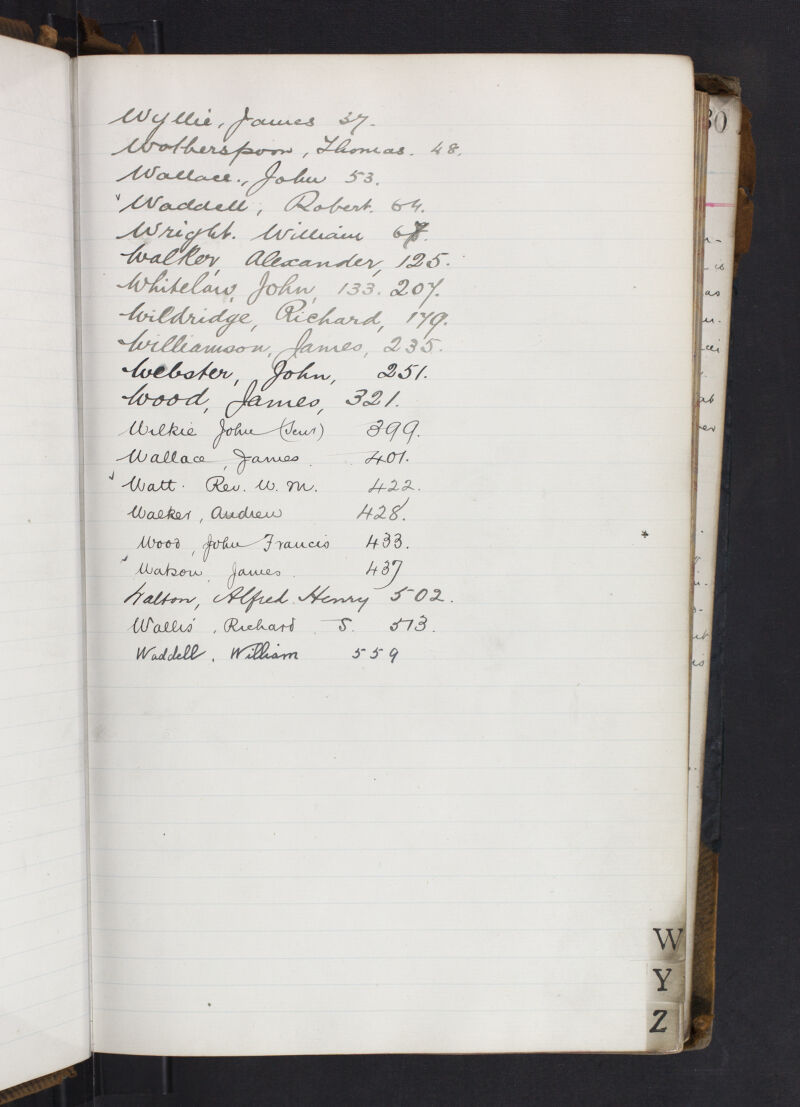 Wyllie, James 37.
Wotherspoon, Thomas. 48.
Wallace., John 53.
Waddell, Robert. 64.
Wright. William
Walker, Alexander, 125.
Whitelaw, John, 133. 207.
Wildridge, Richard, 179.
Williamson, James, 235.
Webster, John, 251.
Wood, James, 321.
Wilkie John (Senr) 399.
Wallace, James 401.
Watt. Rev. W. M. 422.
Walker, Andrew 428.
Wood, John Francis 433.
Watson, James 437
Walton, Alfred Henry 502.
Wallis, Richard S. 513.
Waddell, William 559
30
W
Y
Z